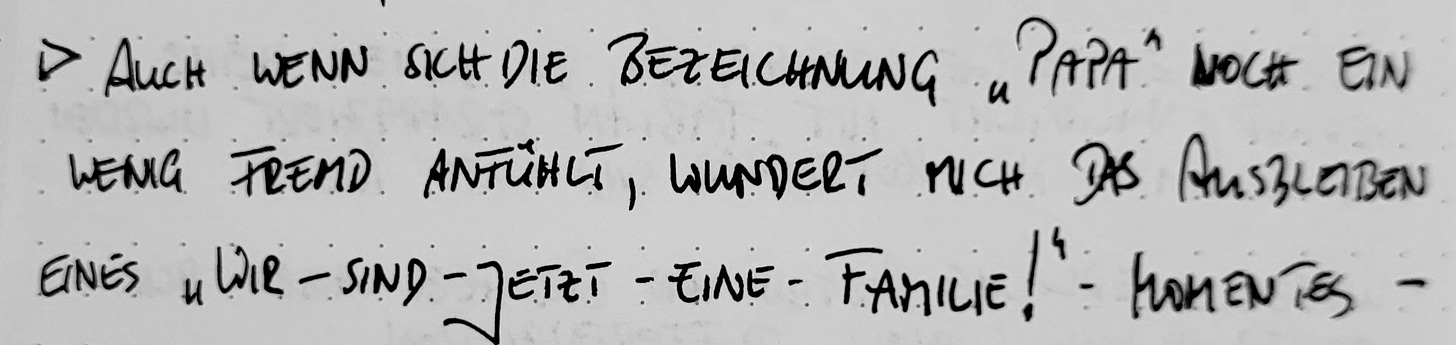 ▷ AUCH WENN SICH DIE BEZEICHNUNG „PAPA“ NOCH EIN
WENIG FREMD ANFÜHLT, WUNDERT MICH DAS AUSBLEIBEN
EINES „WIR-SIND-JETZT-EINE-FAMILIE!“-MOMENTES -